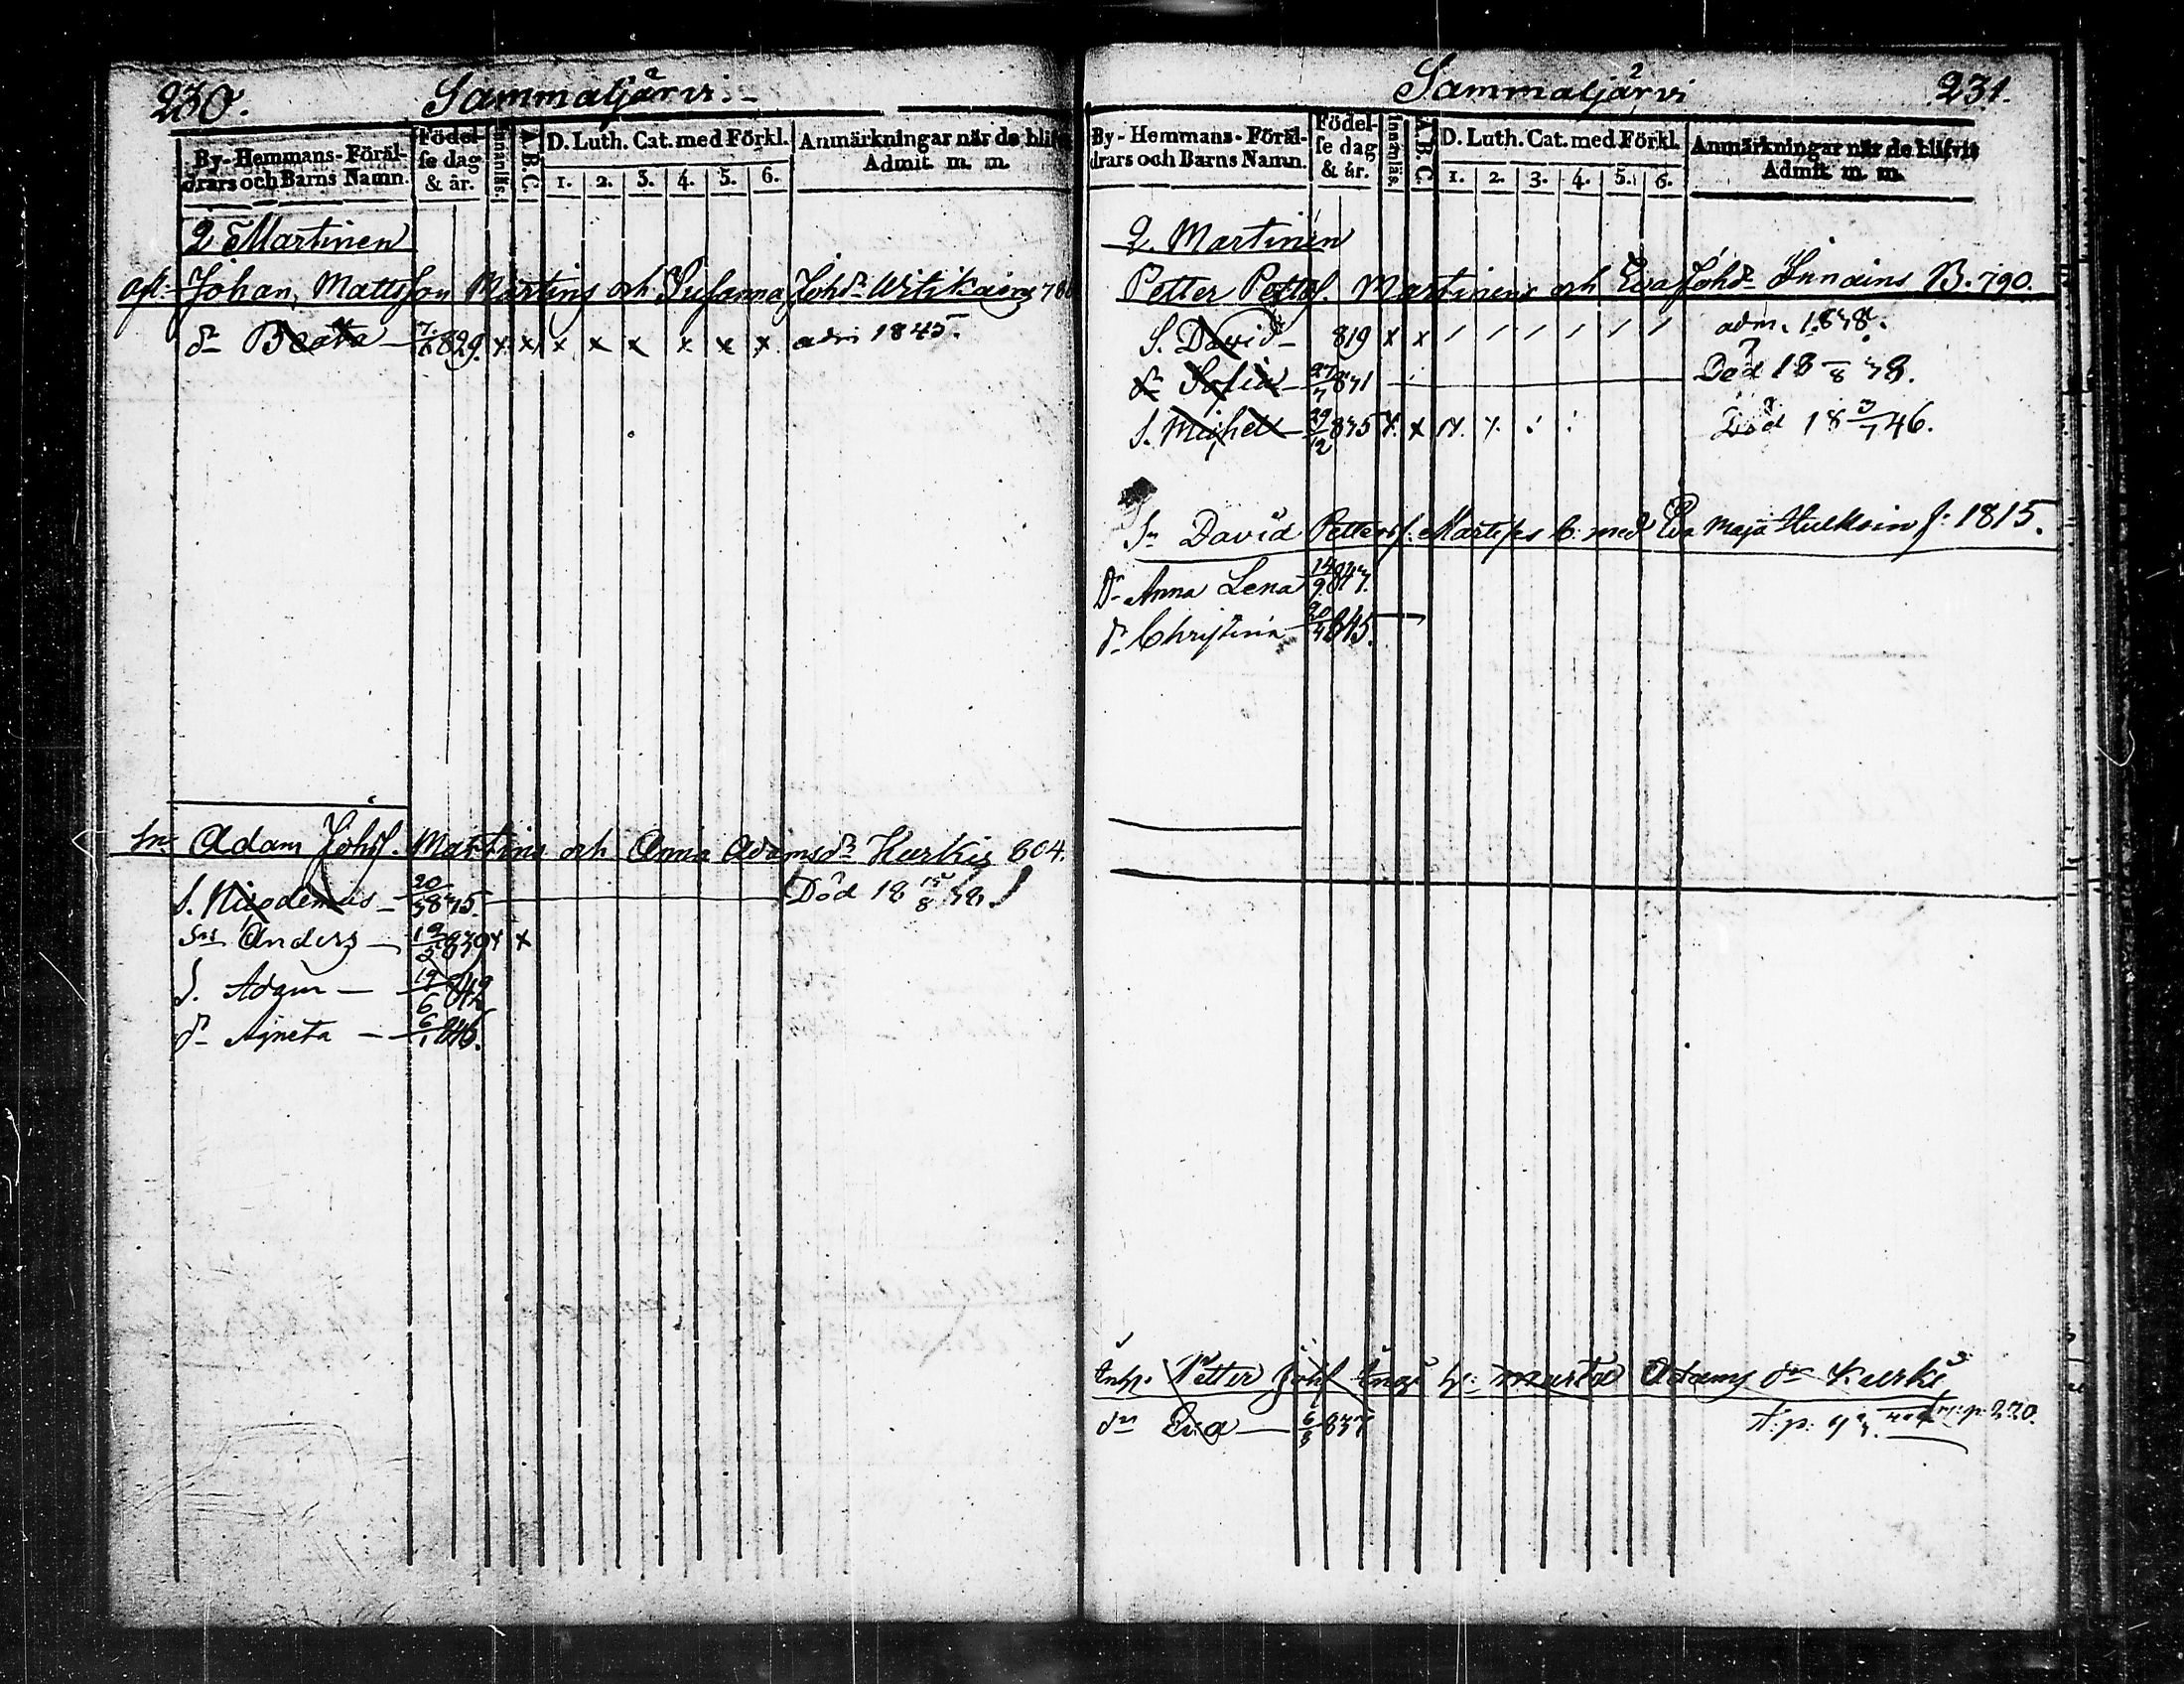 230.
Sammaljärvi:
By-Hemmans-Föräl-
drars och Barns Namn.
Födel-
se dag
& år.
Innanläs.
A.B.C.
D. Luth. Cat. med Förkl.
1. 2. 3. 4. 5. 6.
Anmärkningar när de blifv
Admit. m. m.
2 Martinen
afl: Johan Mattsson Martins och Susanna Johdr
dr Beata 829. x x x x x x x x adm 1845.
Sn: Adam Johs. Martins och Anna Adamsdr Karkis 804.
S. Nicodemus Död 18
Sn Anders x x
S. Adam 19/6 842
dr Agneta 6/1 846.
Sammaljärvi
231.
By-Hemmans-Föräl-
drars och Barns Namn.
Födel-
se dag
& år.
Innanläs.
A.B.C.
D. Luth. Cat. med Förkl.
1. 2. 3. 4. 5. 6.
Anmärkningar när de blifvit
Admit. m. m.
2. Martinen
Petter Petts. Martinens och Eva Johdr B. 790.
S. David 819 x x / / / / / / adm. 1838.
dr Sofia 27/7 831 Död 18
S. Michel 29/12 835 Död 18 3/7 46.
Sn David Petters. Martins b: med Eva Maja f: 1815.
Dr Anna Lena 14/9 847.
dr Christina 845.
Petter Johs Marta Adams dr
dr Eva 837 p. 220.